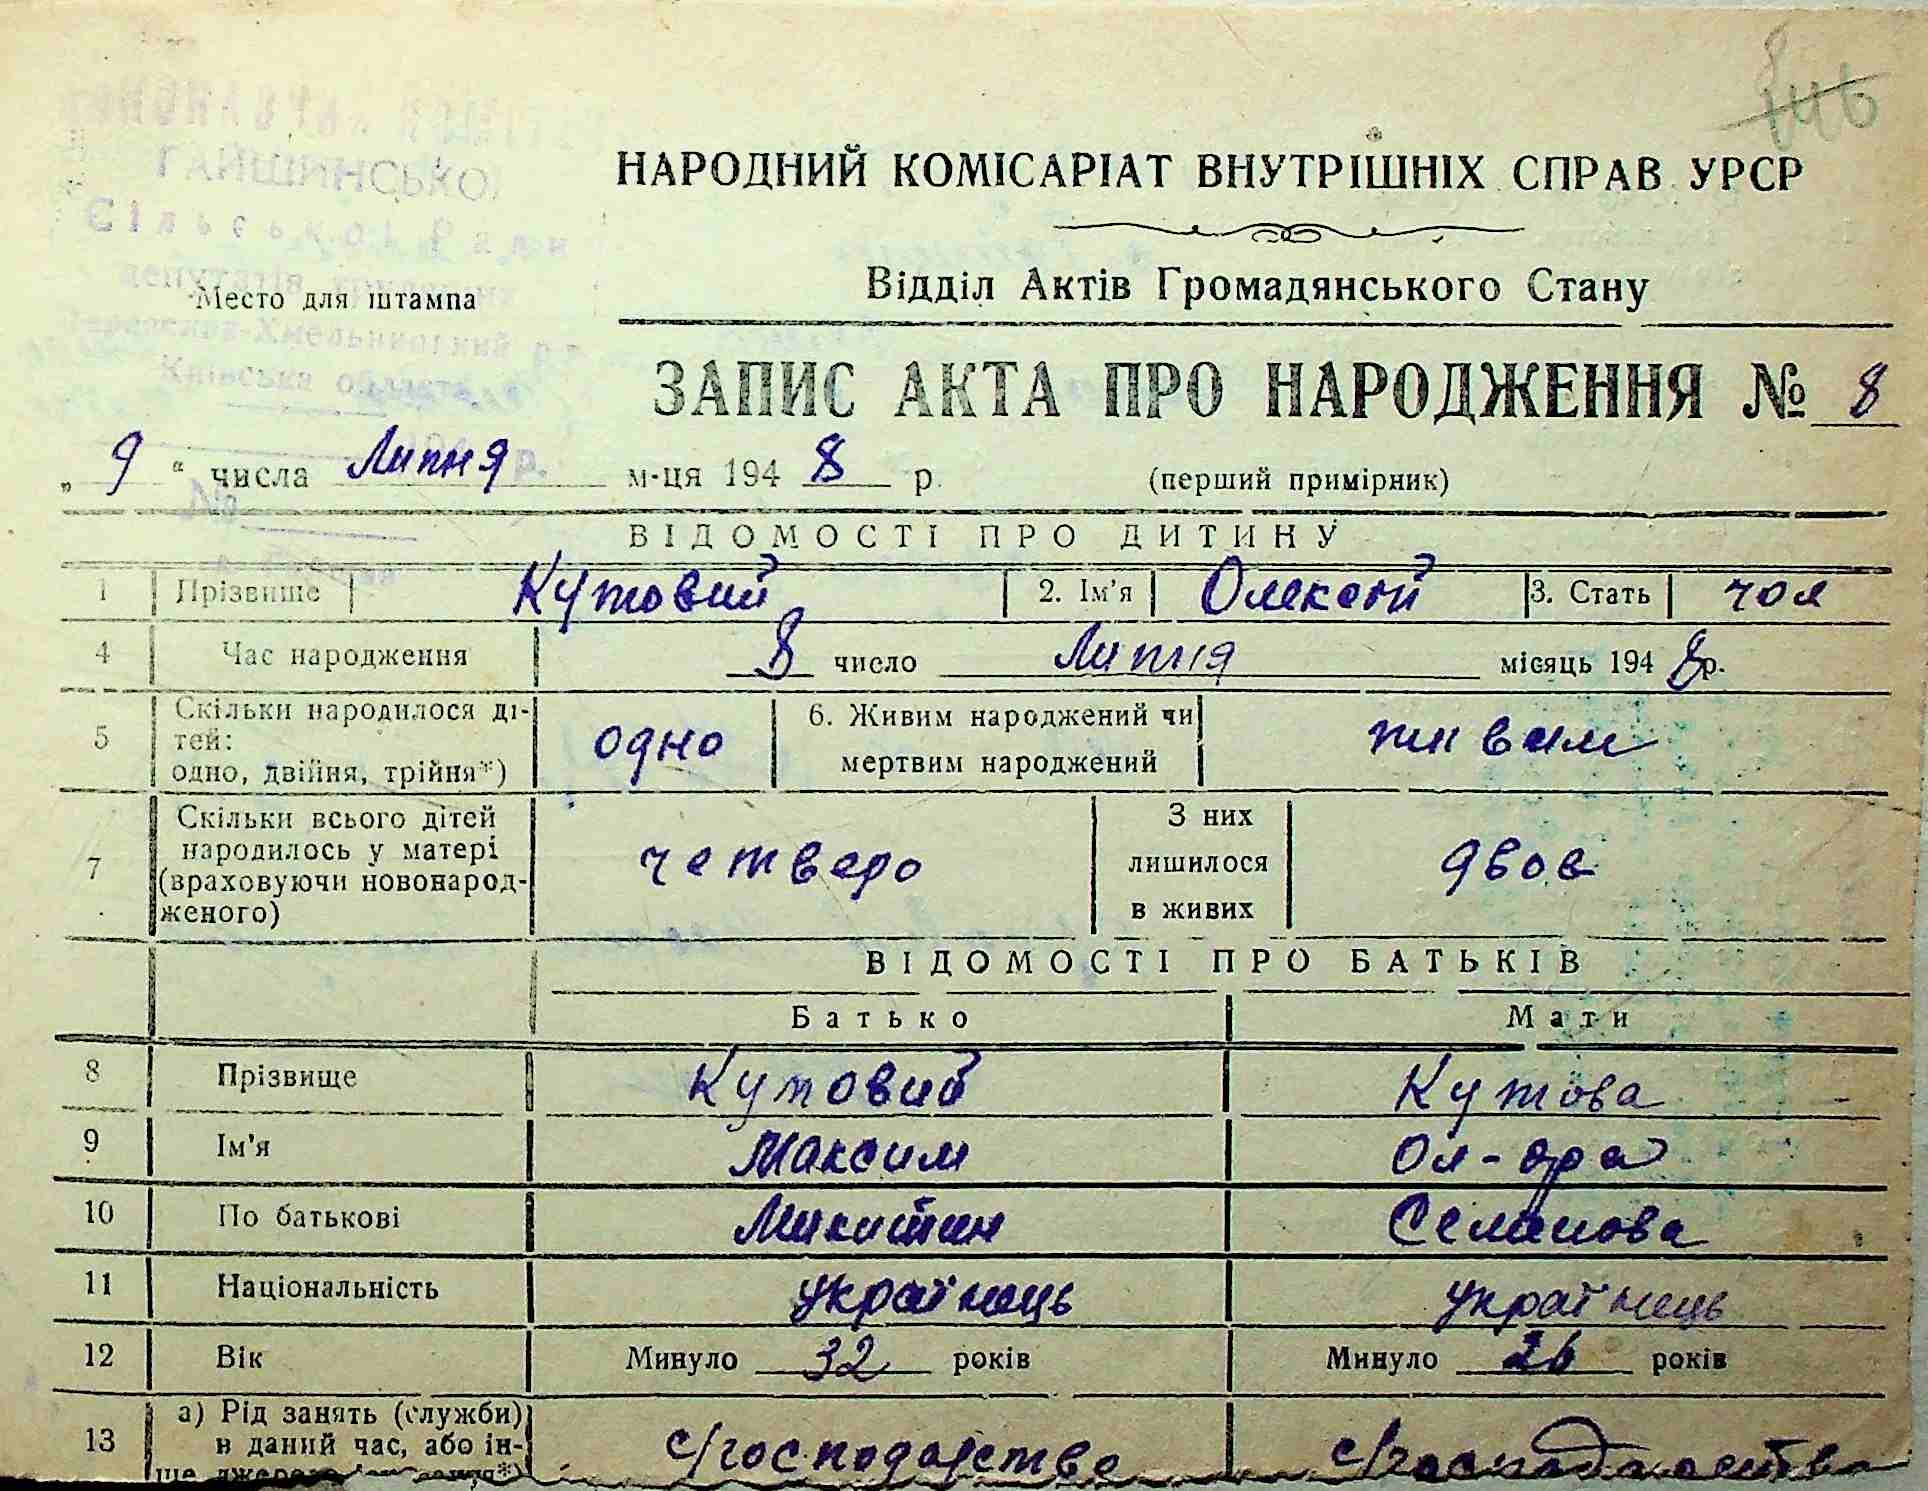 8
146
ГАЙШИНСЬКОЇ
Сільської Ради
депутатів трудящих
Переяслав-Хмельницький р.
Київська область
НАРОДНИЙ КОМІСАРІАТ ВНУТРІШНІХ СПРАВ УРСР
Відділ Актів Громадянського Стану
Место для штампа
ЗАПИС АКТА ПРО НАРОДЖЕННЯ № 8
„ 9 “ числа Липня м-ця 194 8 р. (перший примірник)
№
ВІДОМОСТІ ПРО ДИТИНУ
1 Прізвище Кутовий 2. Ім'я Олексій 3. Стать чол
4 Час народження 8 число Липня місяць 194 8 р.
5 Скільки народилося дітей: одно, двійня, трійня*) одно 6. Живим народжений чи мертвим народжений живим
7 Скільки всього дітей народилось у матері (враховуючи новонародженого) четверо З них лишилося в живих двоє
ВІДОМОСТІ ПРО БАТЬКІВ
Батько Мати
8 Прізвище Кутовий Кутова
9 Ім'я Максим Ол-дра
10 По батькові Микитин Семенова
11 Національність українець українець
12 Вік Минуло 32 років Минуло 26 років
13 а) Рід занять (служби) в даний час, або ін- с/господарство с/господарство